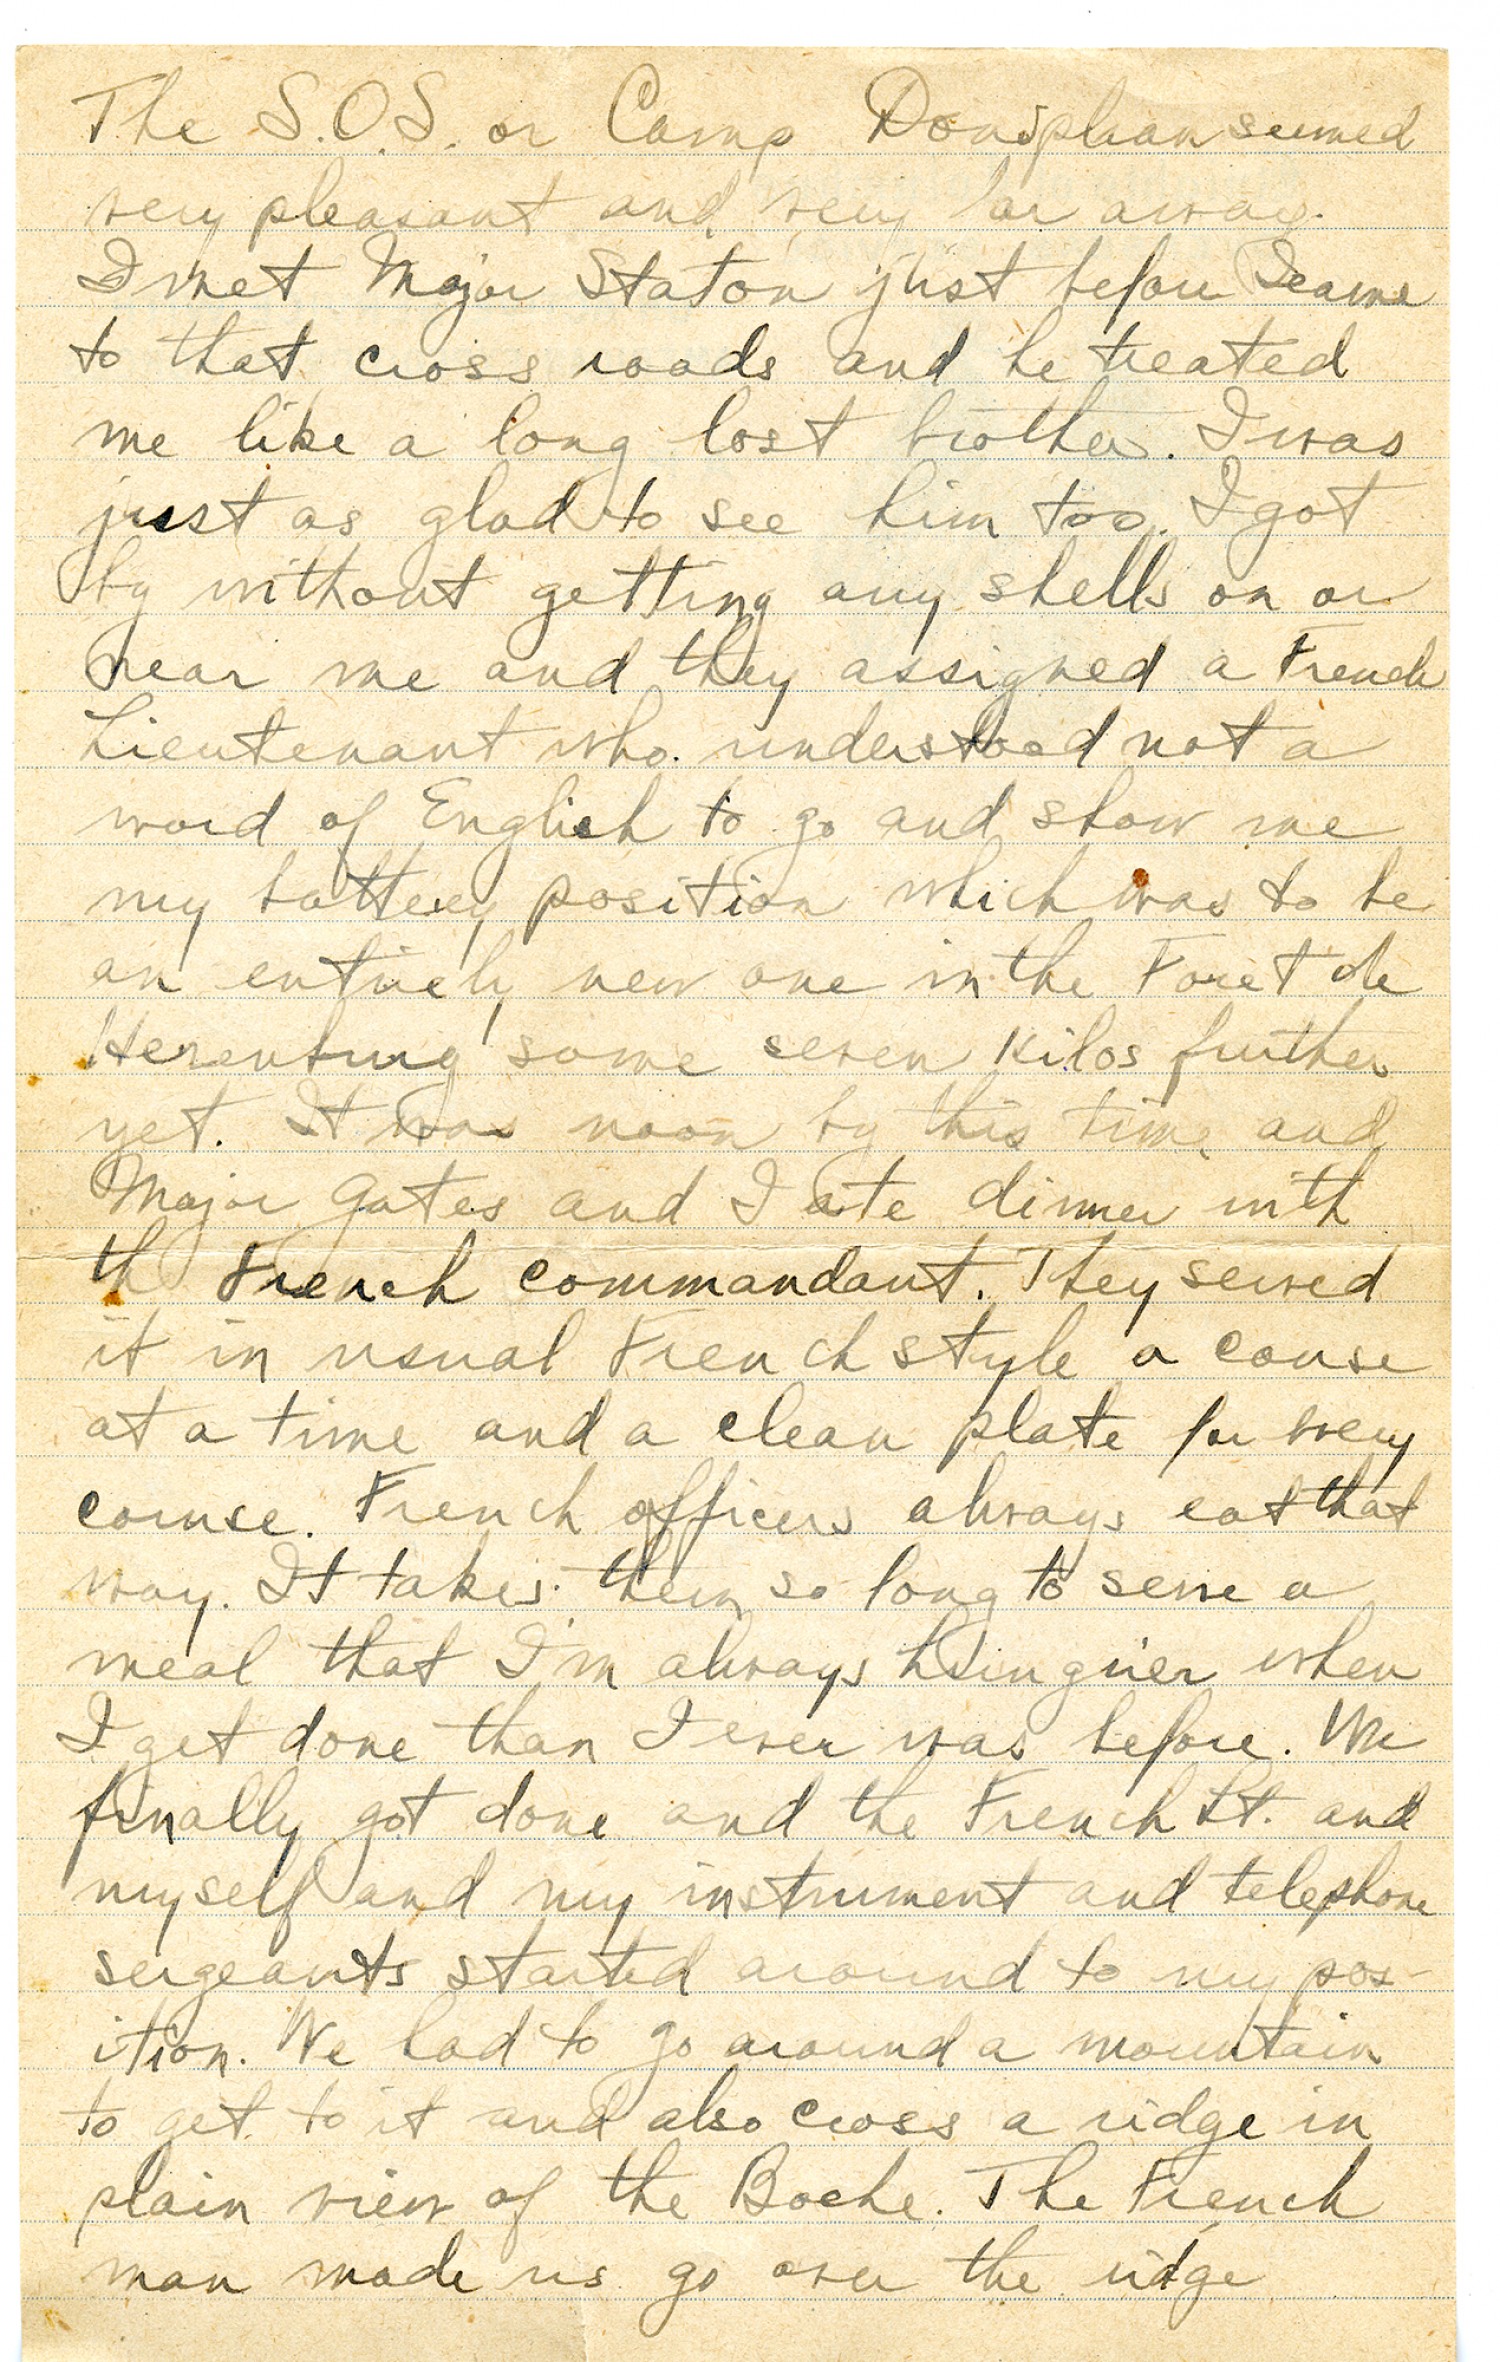 The S.O.S. or Camp Doniphan seemed
very pleasant and very far away.
I met Major Staton just before I came
to that cross roads and he treated
me like a long lost brother. I was
just as glad to see him too. I got
by without getting any shells on or
near me and they assigned a French
Lieutenant who understood not a
word of English to go and show me
my battery position which was to be
an entirely new one in the Foret de
Herenburg some seven kilos further
yet. It was noon by this time and
Major Gates and I ate dinner with
th French commandant. They served
it in usual French style a course
at a time and a clean plate for every
course. French officers always eat that
way. It takes them so long to serve a
meal that I'm always hungrier when
I get done than I ever was before. We
finally got done and the French Lt. and
myself and my instrument and telephone
sergeants started around to my pos-
ition. We had to go around a mountain
to get to it and also cross a ridge in
plain view of the Boche. The French
man made us go over the ridge